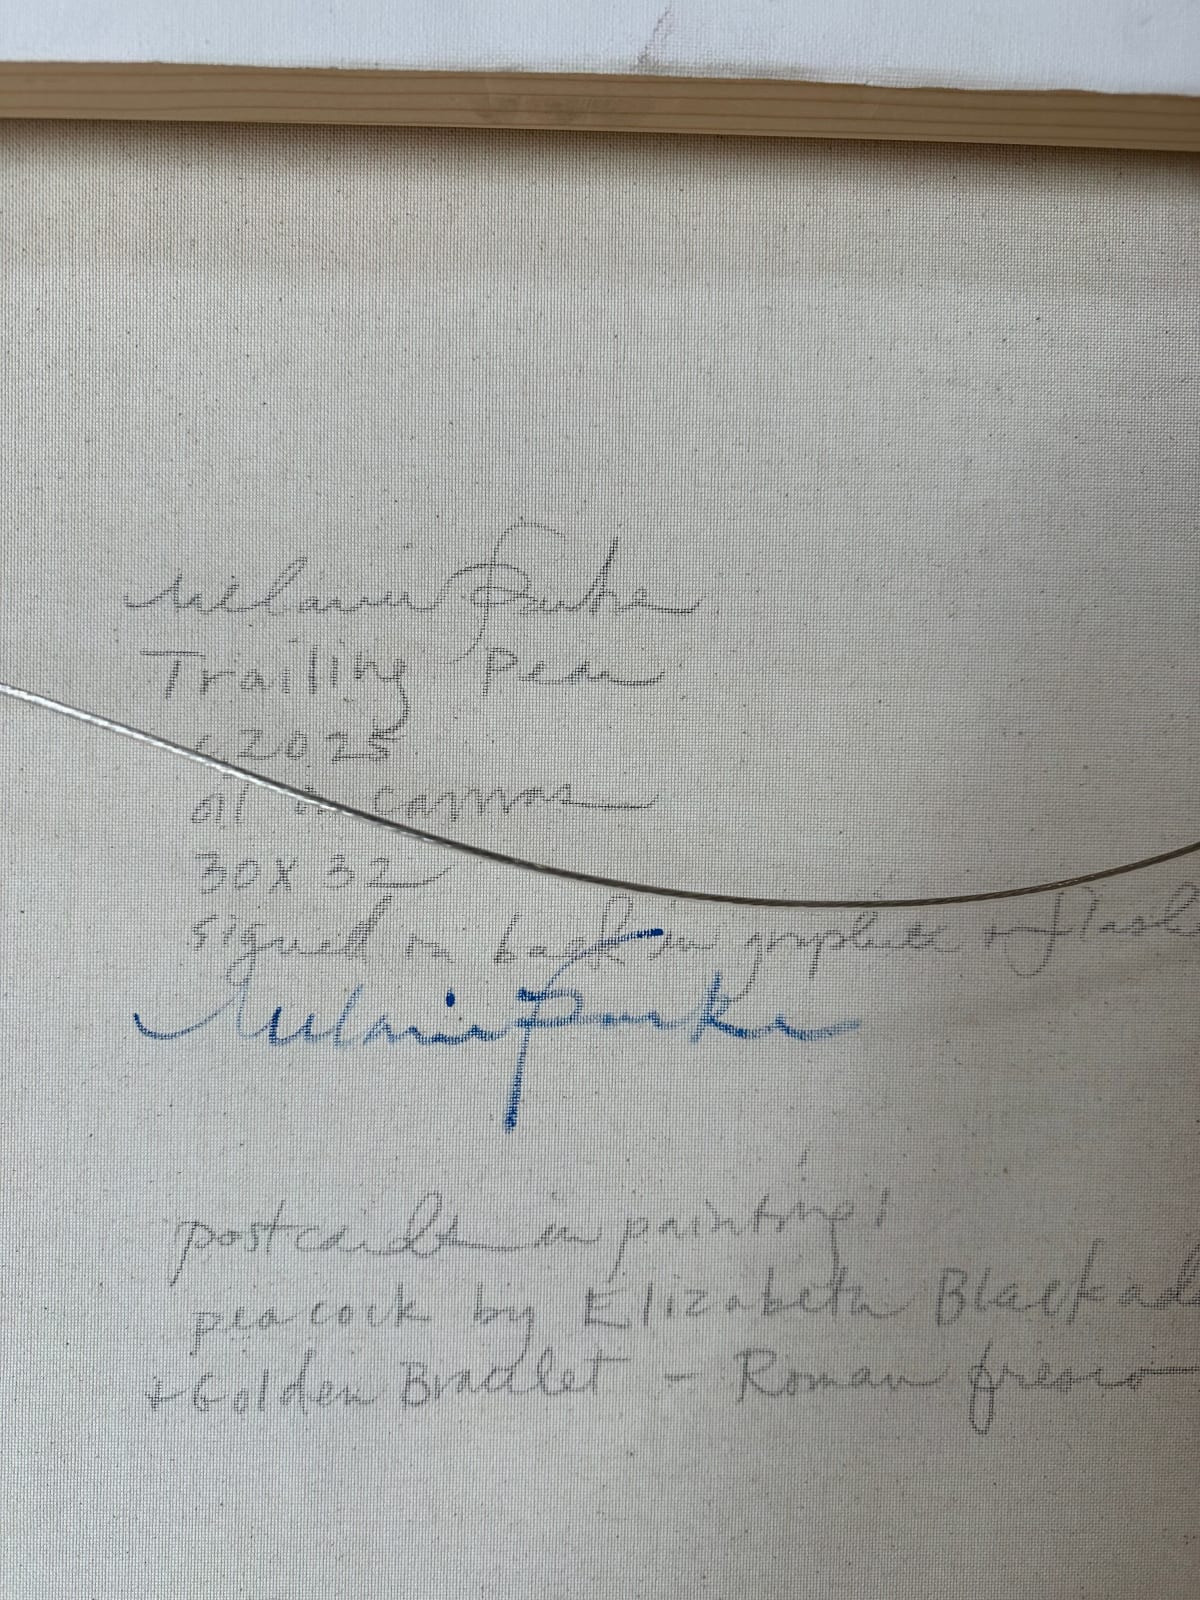 Melanie Parke
Trailing Pear
c2025
oil on canvas
30x32
signed on back in graphite + flashe
Melanie Parke
postcards in painting!
peacock by Elizabeth Blackad
+ Golden Bracelet - Roman fresco